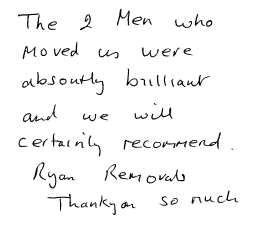 The 2 Men who
moved us were
absoutly brilliant
and we will
certainly recommend.
Ryan Removals
Thankyou so much